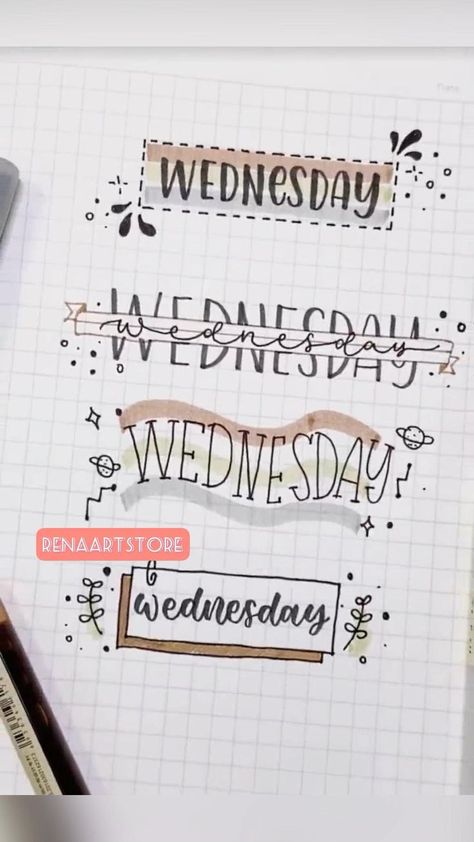 WEDNESDAY
WEDNESDAY
wednesday
WEDNESDAY
RENAARTSTORE
wednesday